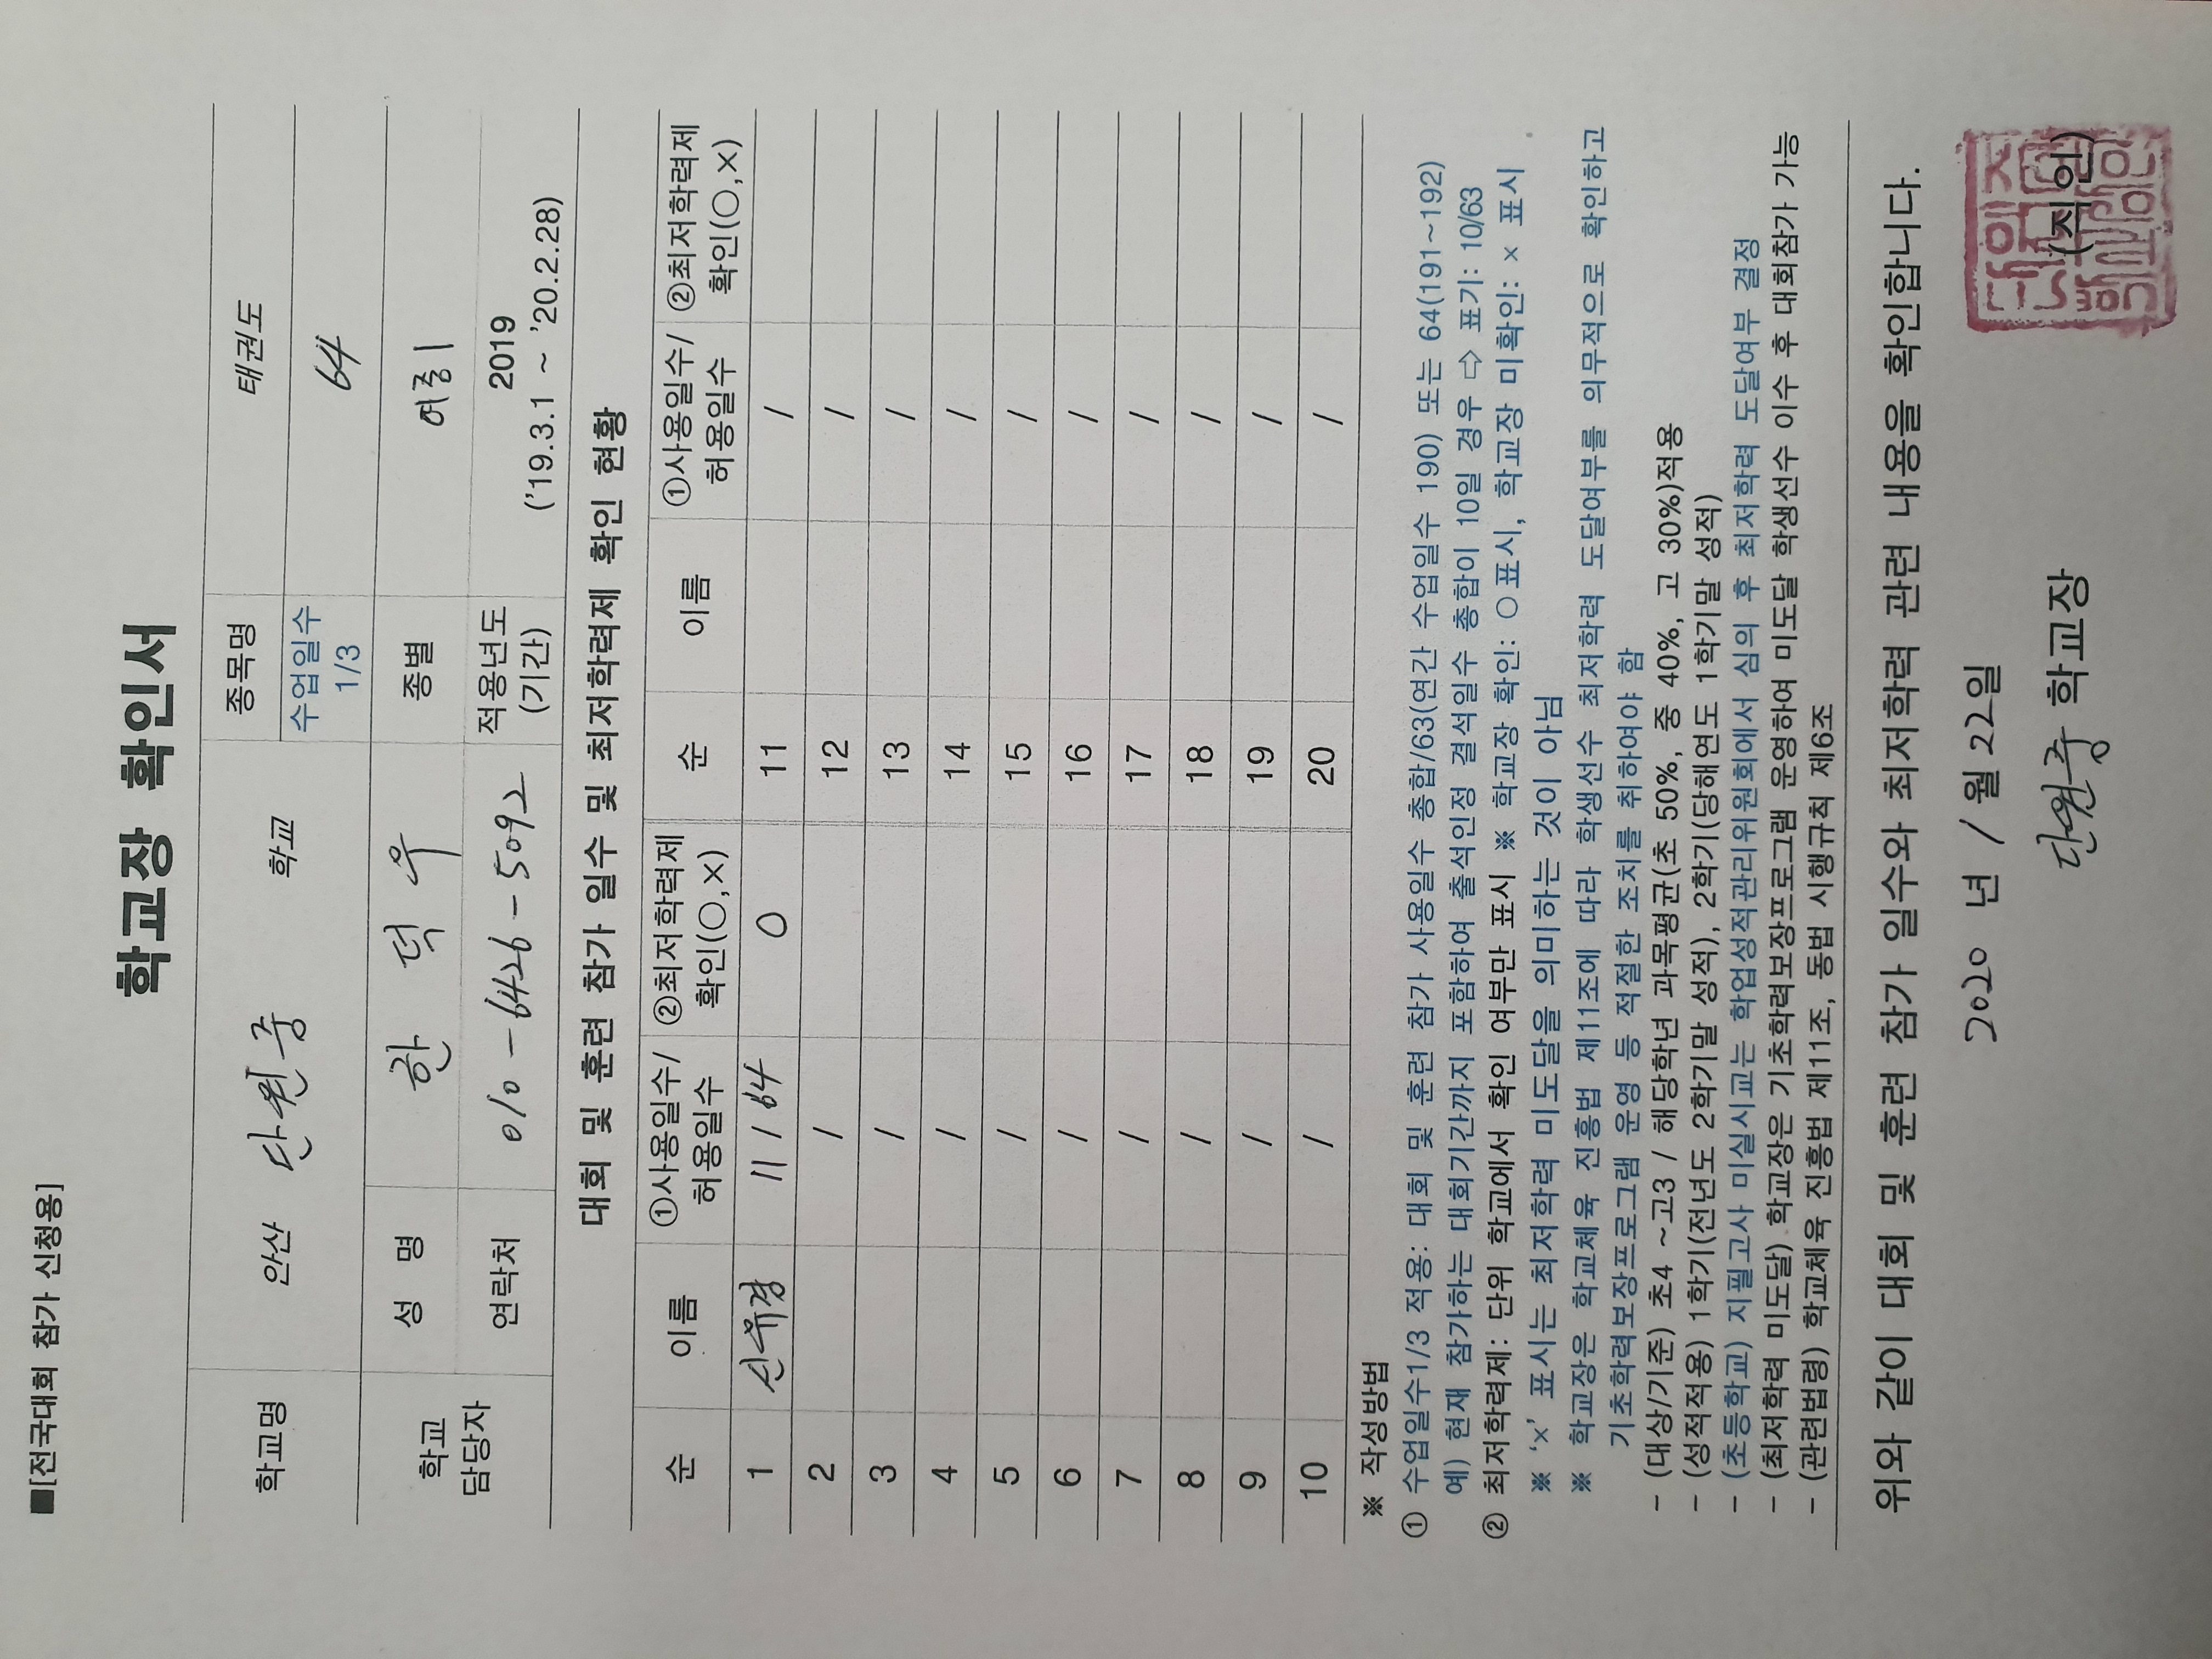 ■[전국대회 참가 신청용]
학교장 확인서
학교명 안산 단원중 학교 종목명 태권도
수업일수 1/3 64
학교 담당자 성 명 한 덕 우 종별 여중1
연락처 010-6426-5092 적용년도 (기간) 2019 ('19.3.1 ~ '20.2.28)
대회 및 훈련 참가 일수 및 최저학력제 확인 현황
순 이름 ①사용일수/허용일수 ②최저학력제 확인(○,×) 순 이름 ①사용일수/허용일수 ②최저학력제 확인(○,×)
1 신유경 11 / 64 O 11 /
2 / 12 /
3 / 13 /
4 / 14 /
5 / 15 /
6 / 16 /
7 / 17 /
8 / 18 /
9 / 19 /
10 / 20 /
※ 작성방법
① 수업일수1/3 적용: 대회 및 훈련 참가 사용일수 총합/63(연간 수업일수 190) 또는 64(191~192)
예) 현재 참가하는 대회기간까지 포함하여 출석인정 결석일수 총합이 10일 경우 ⇨ 표기: 10/63
② 최저학력제: 단위 학교에서 확인 여부만 표시 ※ 학교장 확인: ○표시, 학교장 미확인: × 표시
※ ‘×’ 표시는 최저학력 미도달을 의미하는 것이 아님
※ 학교장은 학교체육 진흥법 제11조에 따라 학생선수 최저학력 도달여부를 의무적으로 확인하고
기초학력보장프로그램 운영 등 적절한 조치를 취하여야 함
- (대상/기준) 초4 ~고3 / 해당학년 과목평균(초 50%, 중 40%, 고 30%)적용
- (성적적용) 1학기(전년도 2학기말 성적), 2학기(당해연도 1학기말 성적)
- (초등학교) 지필고사 미실시교는 학업성적관리위원회에서 심의 후 최저학력 도달여부 결정
- (최저학력 미도달) 학교장은 기초학력보장프로그램 운영하여 미도달 학생선수 이수 후 대회참가 가능
- (관련법령) 학교체육 진흥법 제11조, 동법 시행규칙 제6조
위와 같이 대회 및 훈련 참가 일수와 최저학력 관련 내용을 확인합니다.
2020 년 1 월 22일
단원중 학교장 (직인)